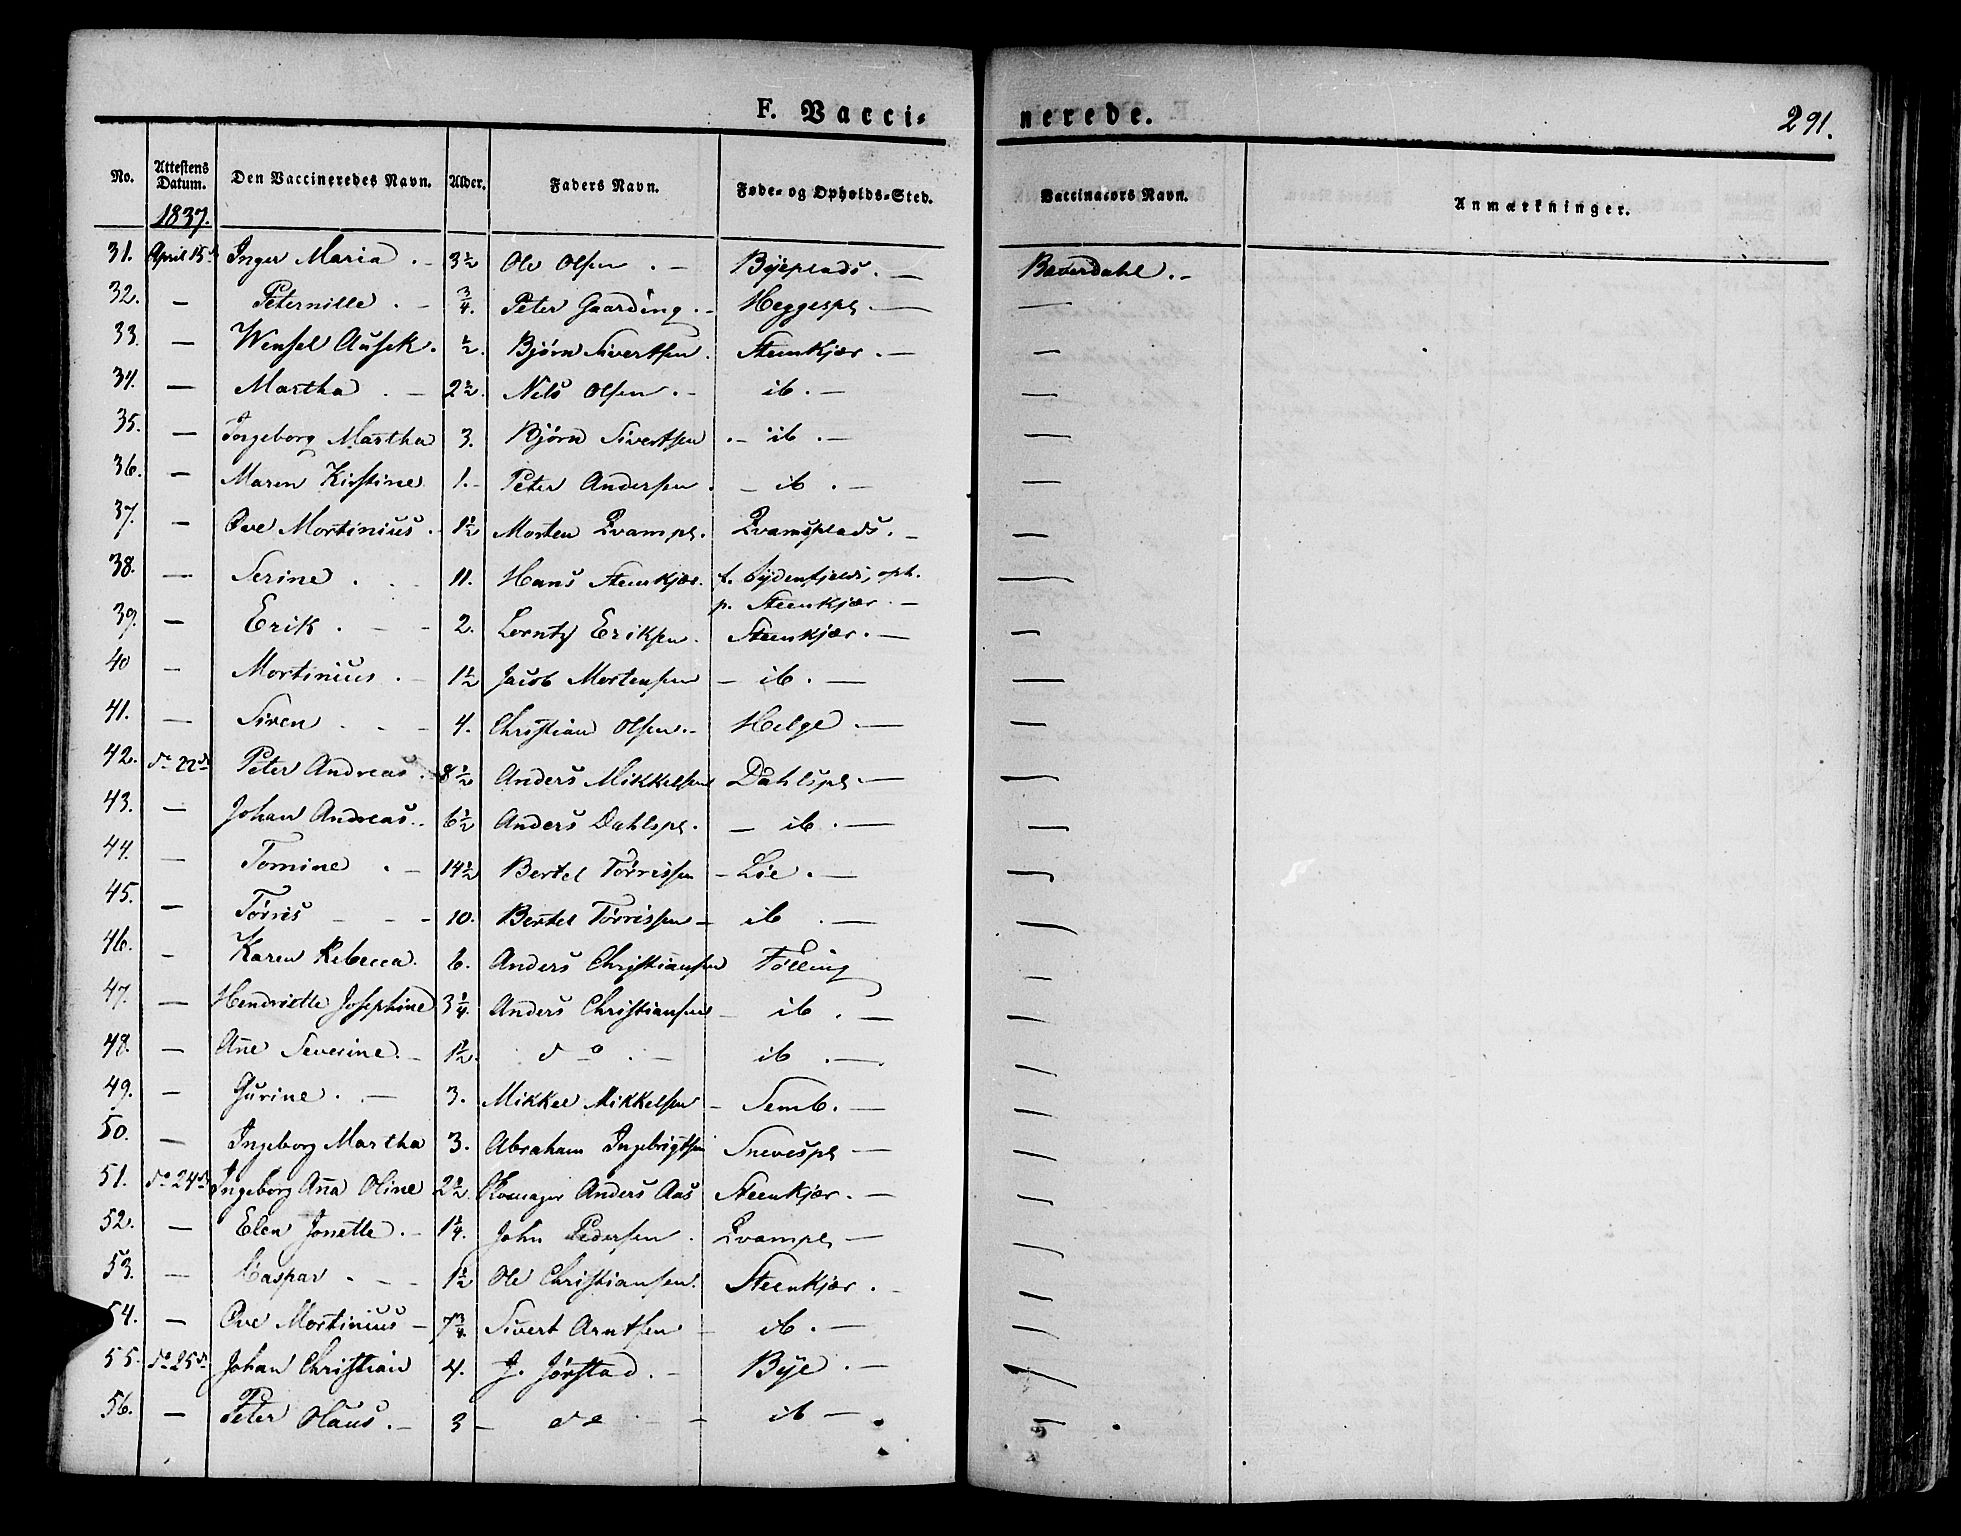 F. Vacci-
nerede.
291.
No. Attestens Datum. Den Vaccineredes Navn. Alder. Faders Navn. Føde- og Opholds-Sted. Vaccinators Navn. Anmærkninger.
1837.
31. April 15d Inger Maria. - 3½ Ole Olsen. - Byeplads. - Baverdahl. -
32. - Peternille. - ¾. Peter Gaarding. - Heggespl - -
33. - Wensel Ausek. ½. Bjørn Sivertsen. Steenkjær. - -
34. - Martha. - 2½. Nils Olsen. - ib. - -
35. - Ingeborg Martha 3. Bjørn Sivertsen. - ib. - -
36. - Maren Kirstine 1. - Peter Andersen. - ib. - -
37. - Ove Mortinius. 1½ Morten Qvampl. Qvamsplads. - -
38. - Serine. - 11. Hans Steenkjær. f. Sydenfjelds, oph.
p. Steenkjær. - -
39. - Erik. - - 2. Lorntz Eriksen. Steenkjær. - -
40 - Mortinius. - 1½ Jacob Mortensen - ib. - -
41. - Siren - - 4. Christian Olsen. - Helge. - -
42. do 22d Peter Andreas. 8½ Anders Mikkelsen Dahlspl - -
43. - Johan Andreas. 6½ Anders Dahlspl. - ib. - -
44. - Tomine. - 14½ Bertel Tørrissen - Lie. - -
45. - Tørris - - - 10. Bertel Tørrissen - ib. - -
46. - Karen Rebecca. 6. Anders Christiansen Følling -
47. - Hendriette Josephine 3¼. Anders Christiansen - ib. - -
48. - Ane Severine. - 1½. do. - ib. - -
49. - Gurine. - 3. Mikkel Mikkelsen - Semb. - -
50. - Ingeborg Martha 3. Abraham Ingebrigtsen Snevespl - -
51. do 24d Ingeborg Anna Oline 2½ Anders Aas Steenkjær. - -
52. - Elen Jonette. - 1¼. John Pedersen. Qvampl - -
53. - Caspar. - - 1½ Ole Christiansen. Steenkjær. - -
54. - Ove Mortinius - 7¾. Sivert Arntsen - ib. - -
55. do 25d Johan Christian 4. J. Jørstad. - Bye. - -
56. - Peter Olaus. - 3 - do - - ib - -